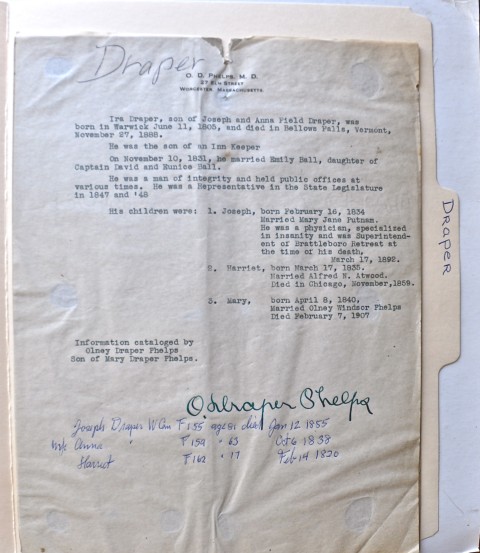 Draper
O. D. PHELPS, M. D.
27 ELM STREET
WORCESTER, MASSACHUSETTS
Ira Draper, son of Joseph and Anna Field Draper, was
born in Warwick June 11, 1805, and died in Bellows Falls, Vermont,
November 27, 1888.
He was the son of an Inn Keeper
On November 10, 1831, he married Emily Ball, daughter of
Captain David and Eunice Ball.
He was a man of integrity and held public offices at
various times. He was a Representative in the State Legislature
in 1847 and '48
His children were: 1. Joseph, born February 16, 1834
Married Mary Jane Putnam.
He was a physician, specialized
in insanity and was Superintend-
ent of Brattleboro Retreat at
the time of his death,
March 17, 1892.
2. Harriet, born March 17, 1835.
Married Alfred N. Atwood.
Died in Chicago, November,1859.
3. Mary, born April 8, 1840,
Married Olney Windsor Phelps
Died February 7, 1907
Information cataloged by
Olney Draper Phelps
Son of Mary Draper Phelps.
O. Draper Phelps
Joseph Draper W Cem F 155 age 81 died Jan 12 1855
wife Anna " F 159 " 63 Oct 6 1838
Harriet F 162 " 17 Feb 14 1820
DRAPER